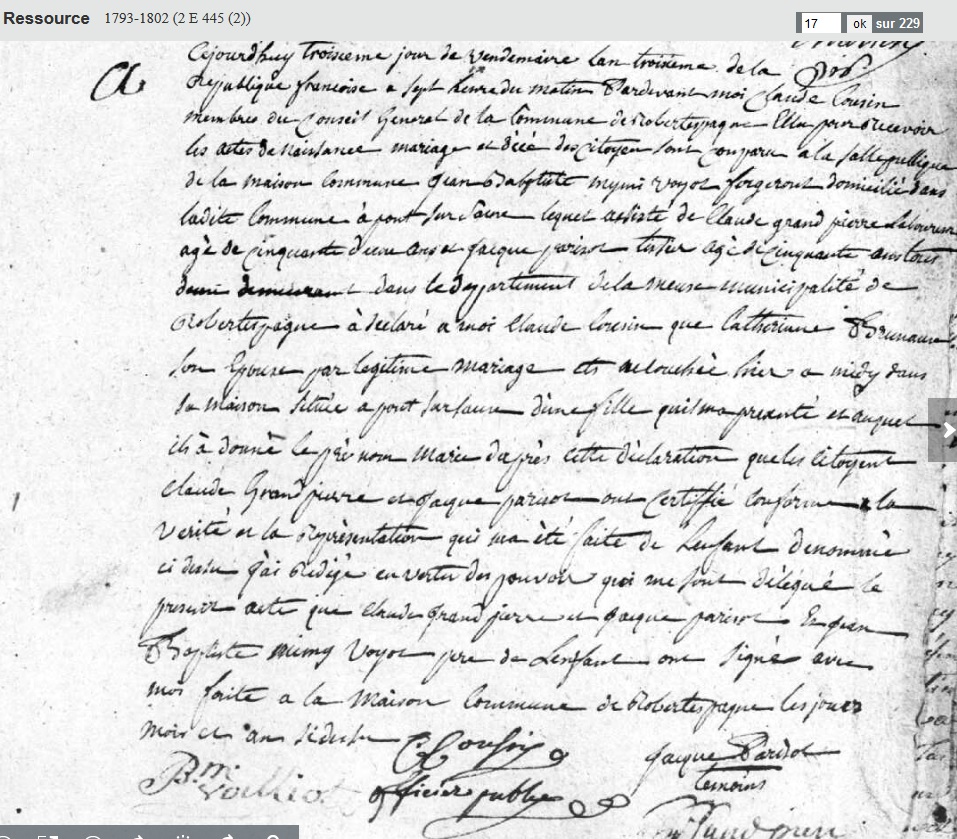 Ressource 1793-1802 (2 E 445 (2)) 17 ok sur 229
Cejourdhuy troisieme jour de Vendemaire Lan troisieme de la
Republique francoise a sept heure du matin Pardevant moi Claude Cousin
membres du Conseil General de la Commune de Robertespagne Ellu pour recevoir
les actes de Naissance mariage et décé des Citoyen sont comparu a la salle pullique
de la maison Commune jean Babptiste mymi voyot forgeront domicilié dans
ladite Commune à pont sur saone lequel assisté de Claude grand pierre Laboureur
agè de cinquante deux ans et jacque parisot tissier agè de cinquante ans tous
demeurant dans le deppartement de la meuse municipalité de
Robertespagne à declaré a moi Claude Cousin que Catherinne
son Epouse par legitime mariage ets acouchèe hier a midy dans
sa maison situèe a pont sur saux d'une fille quil ma presenté et auquel
ils à donnè le prènom Marie d'après cette dèclaration que les citoyent
claude Grand pierre et Jaque parisot ont Certiffié conforme a la
verité et la Représentation qui ma èté faite de Lenfant denommèe
ci dessu j'ai Redigé en vertu des pouvoir qui me sont délégué le
present acte que claude grand pierre et jacque parisot Et jean
Baptiste mimy Voyot pere de Lenfant ont signé avec
moi faite a la maison Commune de Robertespagne les jour
mois et an sidessu C Cousin jacque Parisot
Bm voilliot officier public temoins